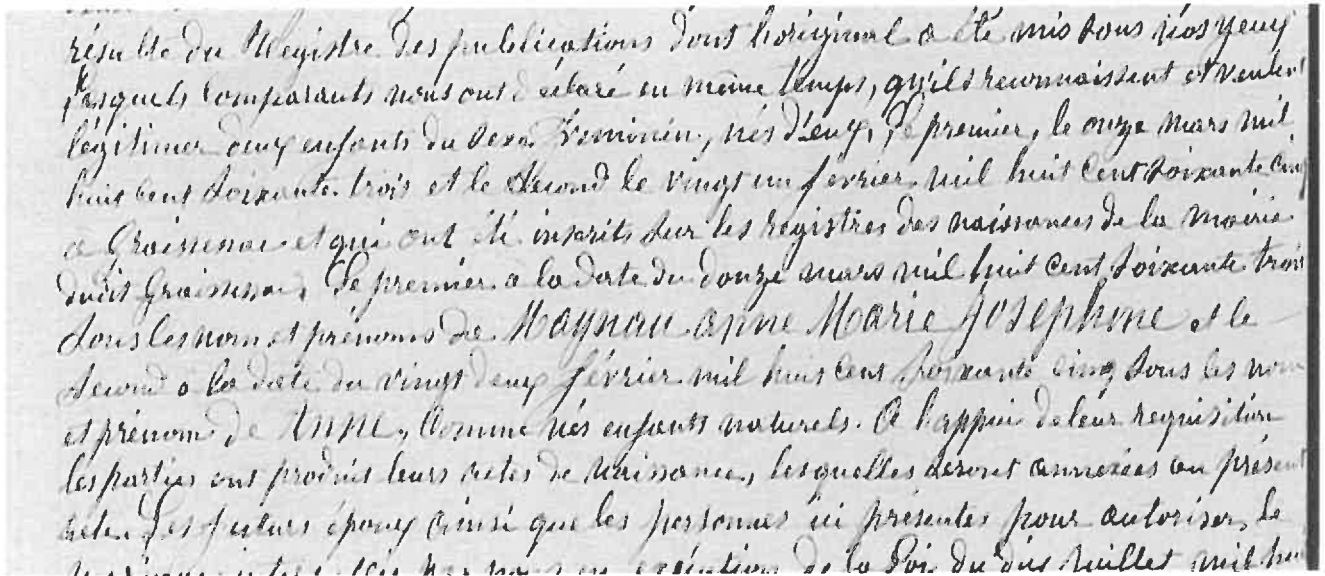 résulte du Registre des publications dont l'original a été mis sous nos yeux
lesquels comparants nous ont déclaré en même temps, qu'ils reconnaissent et veulent
légitimer deux enfants du sexe féminin, nés d'eux, le premier, le onze mars mil
huit cent soixante trois et le second le vingt un février mil huit cent soixante cinq
a Graissessac et qui ont été inscrits sur les registres des naissances de la mairie
dudit Graissessac, le premier a la date du douze mars mil huit cent soixante trois
sous les nom et prénoms de Maynau anne Marie Joséphine et le
second a la date du vingt deux février mil huit cent soixante cinq sous les nom
et prénom de Anne, Comme nés enfants naturels. A l'appui de leur requisition
les parties ont produit leurs actes de naissance, lesquelles seront annexées au présent
acte. Les futurs époux ainsi que les personnes ici présentes pour autoriser le
en exécution de la loi du dix juillet mil